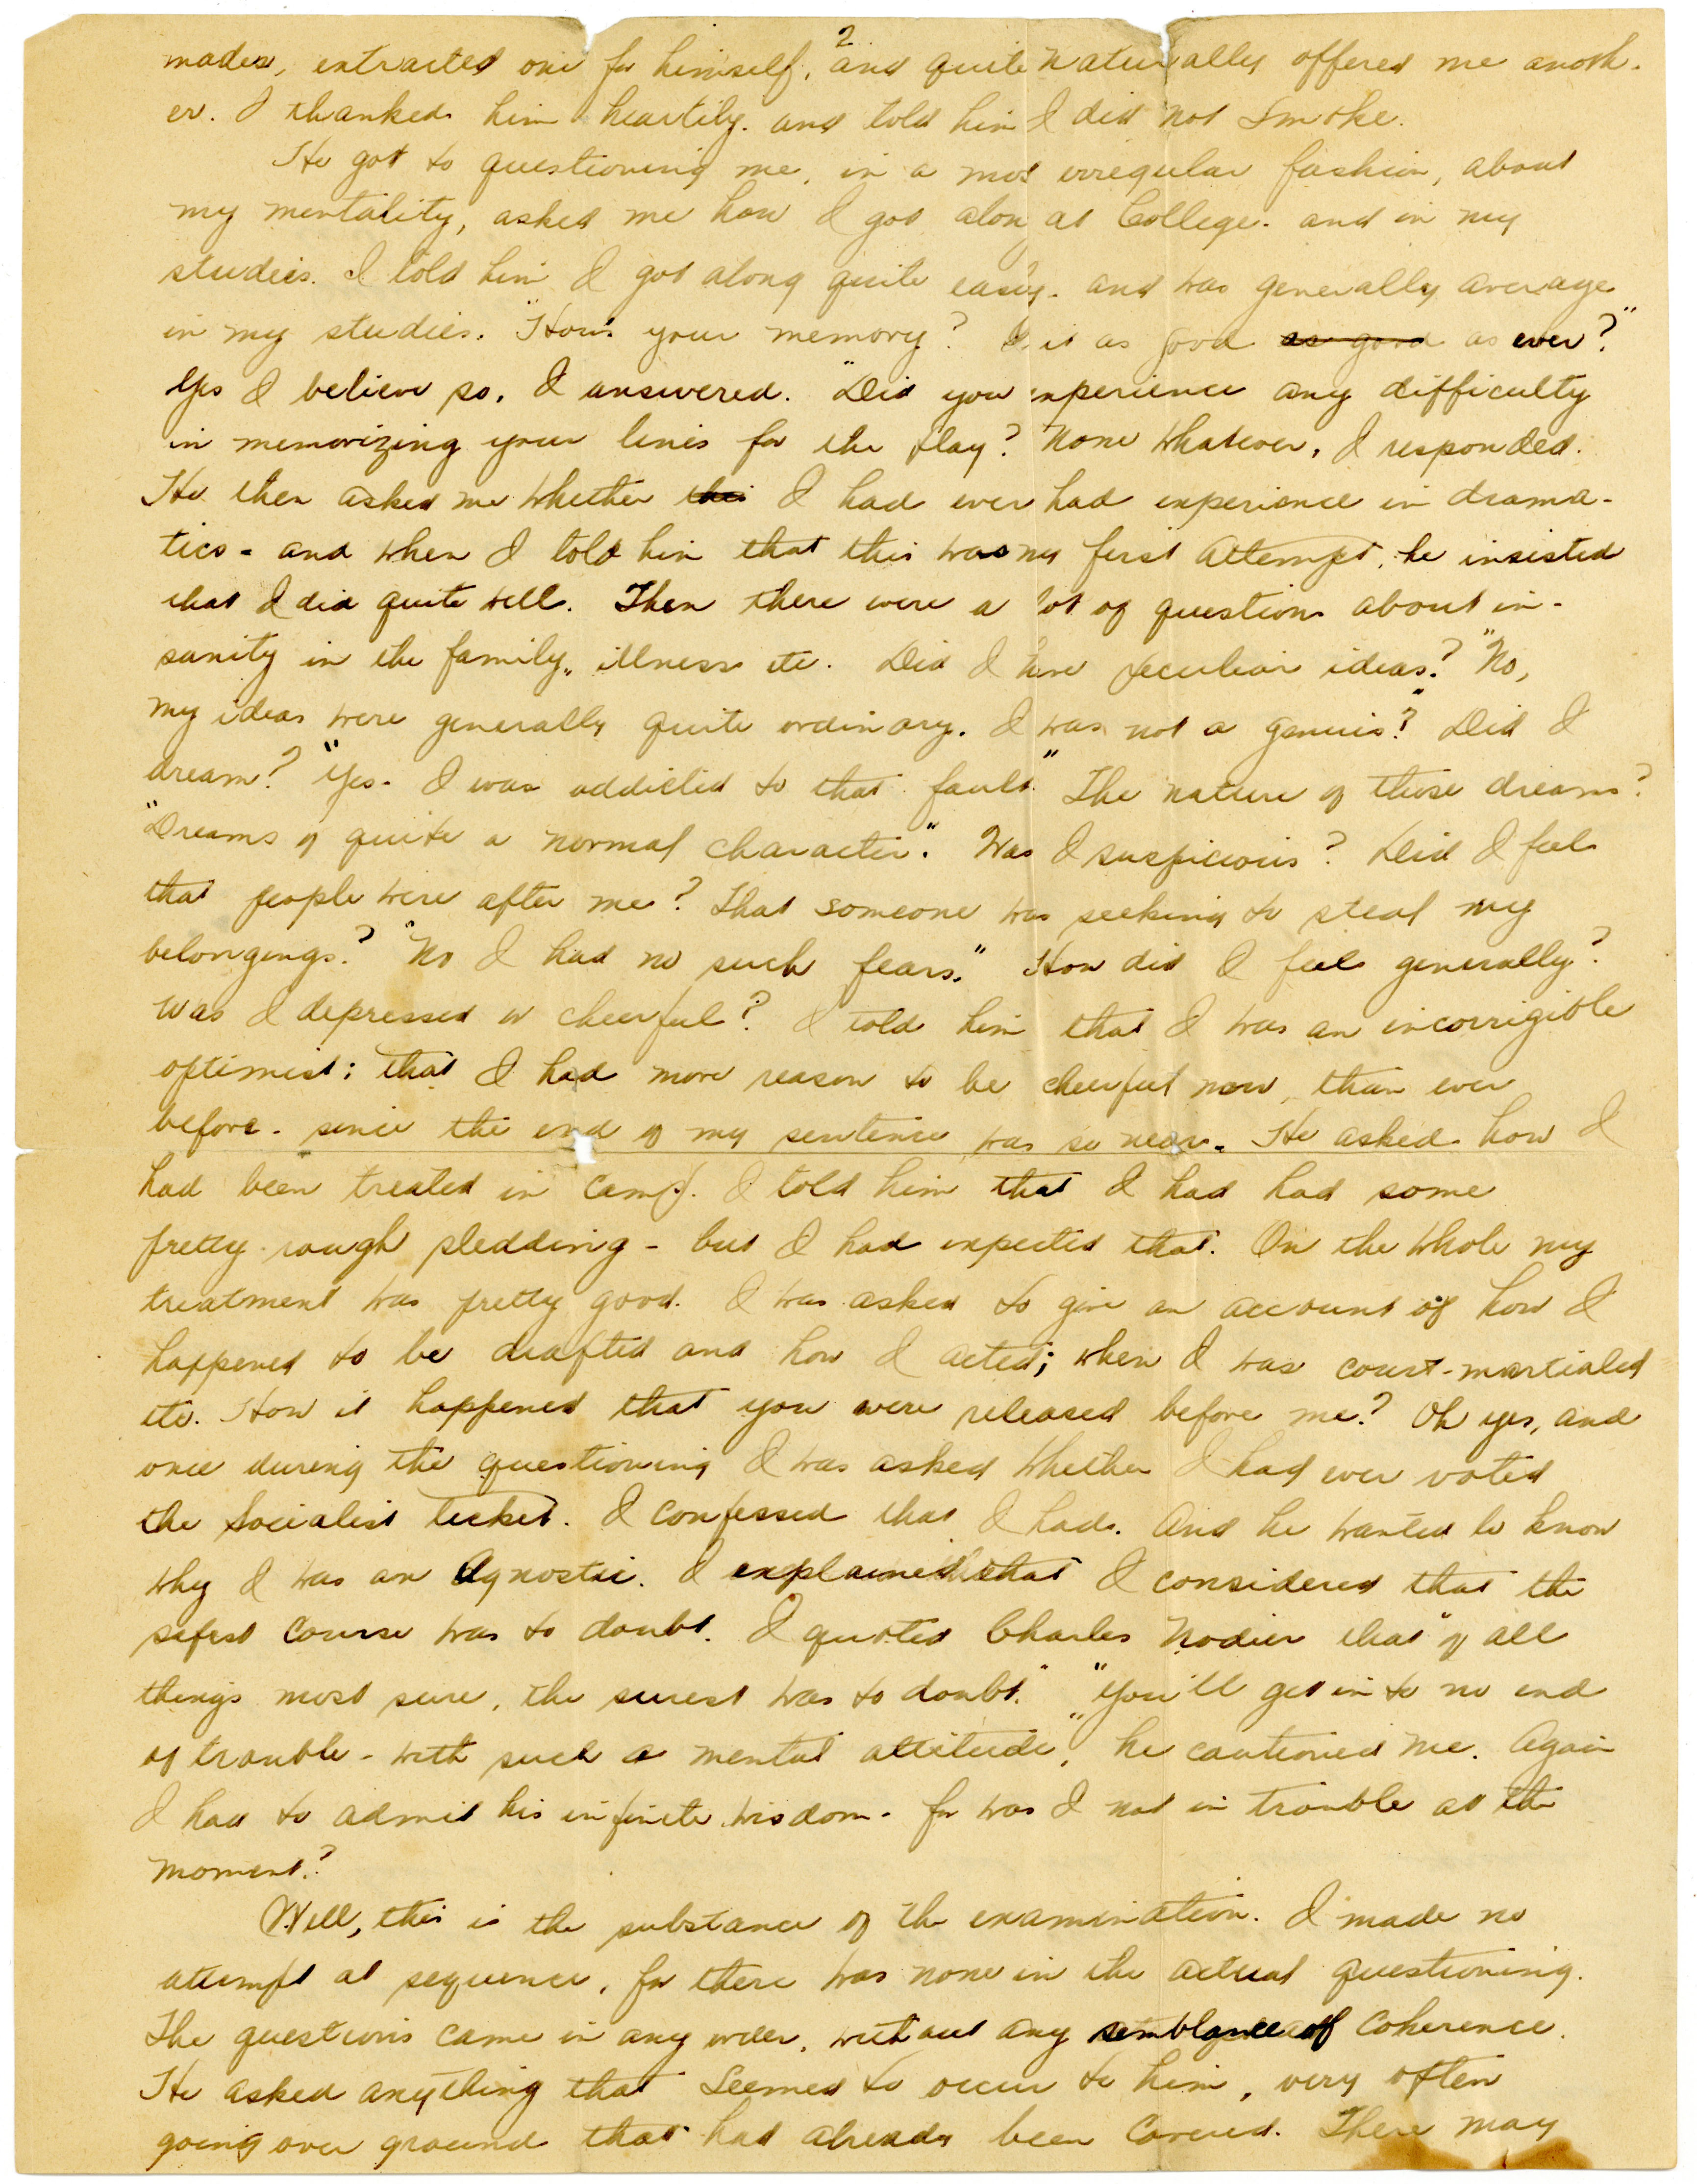 2
mades, extracted one for himself, and quite naturally offered me anoth-
er. I thanked him heartily. and told him I did not smoke.
He got to questioning me, in a most irregular fashion, about
my mentality, asked me how I got along at College. and in my
studies. I told him I got along quite easily. and was generally average
in my studies. "How's your memory? Is it as good as good as ever?"
Yes I believe so, I answered. "Did you experience any difficulty
in memorizing your lines for the play? None whatever, I responded.
He then asked me whether this I had ever had experience in drama-
tics - and when I told him that this was my first attempt, he insisted
that I did quite well. Then there were a lot of questions about in-
sanity in the family, illness etc. Did I have peculiar ideas? "No,
my ideas were generally quite ordinary. I was not a genius?" Did I
dream? "Yes - I was addicted to that fault." The nature of those dreams?
"Dreams of quite a normal character." Was I suspicious? Did I feel
that people were after me? That someone was seeking to steal my
belongings? "No I had no such fears." How did I feel generally?
Was I depressed or cheerful? I told him that I was an incorrigible
optimist; that I had more reason to be cheerful now, than ever
before - since the end of my sentence was so near. He asked how I
had been treated in camp. I told him that I had had some
pretty rough sledding - but I had expected that. On the whole my
treatment was pretty good. I was asked to give an account of how I
happened to be drafted and how I acted; when I was court-martialed
etc. How it happened that you were released before me? Oh yes, and
once during the questioning I was asked whether I had ever voted
the Socialist ticket. I confessed that I had. And he wanted to know
why I was an Agnostic. I explained that I considered that the
safest course was to doubt. I quoted Charles Nodier that "of all
things most sure, the surest was to doubt." "You'll get in to no end
of trouble - with such a mental attitude," he cautioned me. Again
I had to admit his infinite wisdom - for was I not in trouble at the
moment?
Well, this is the substance of the examination. I made no
attempt at sequence, for there was none in the actual questioning.
The questions came in any order, without any semblance of coherence.
He asked anything that seemed to occur to him, very often
going over ground that had already been covered. There may